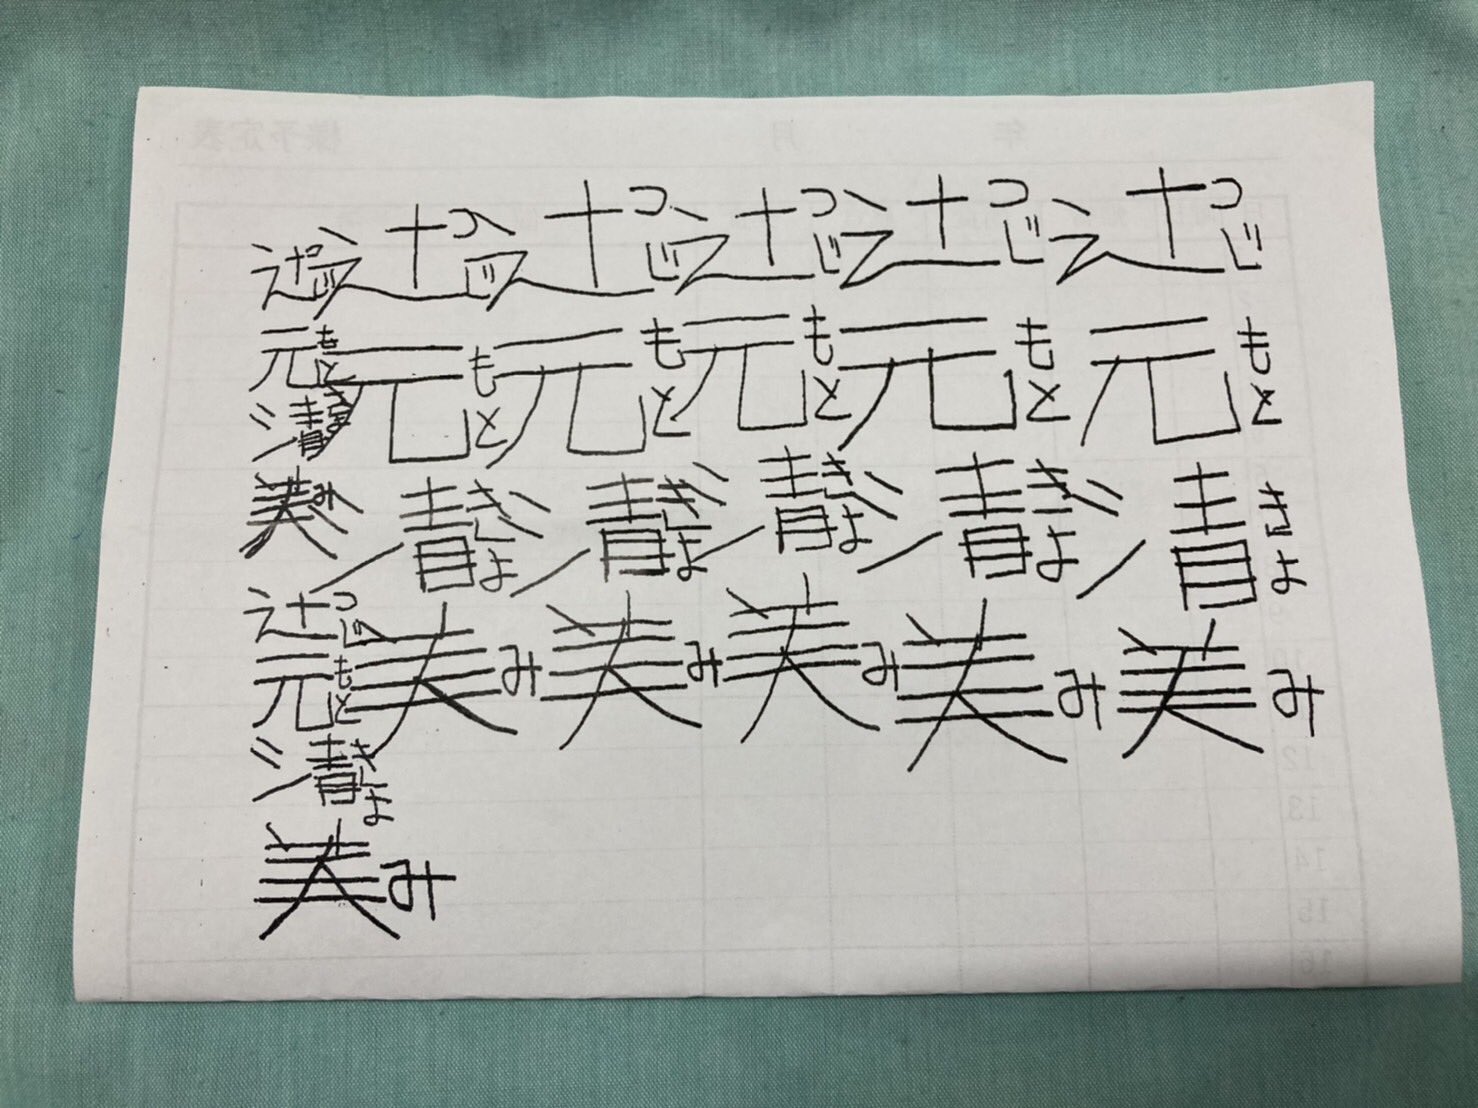 辻つじ元もと清きよ美み
辻つじ元もと清きよ美み
辻つじ元もと清きよ美み
辻つじ元もと清きよ美み
辻つじ元もと清きよ美み
辻つじ元もと清きよ美み
辻つじ元もと清きよ美み